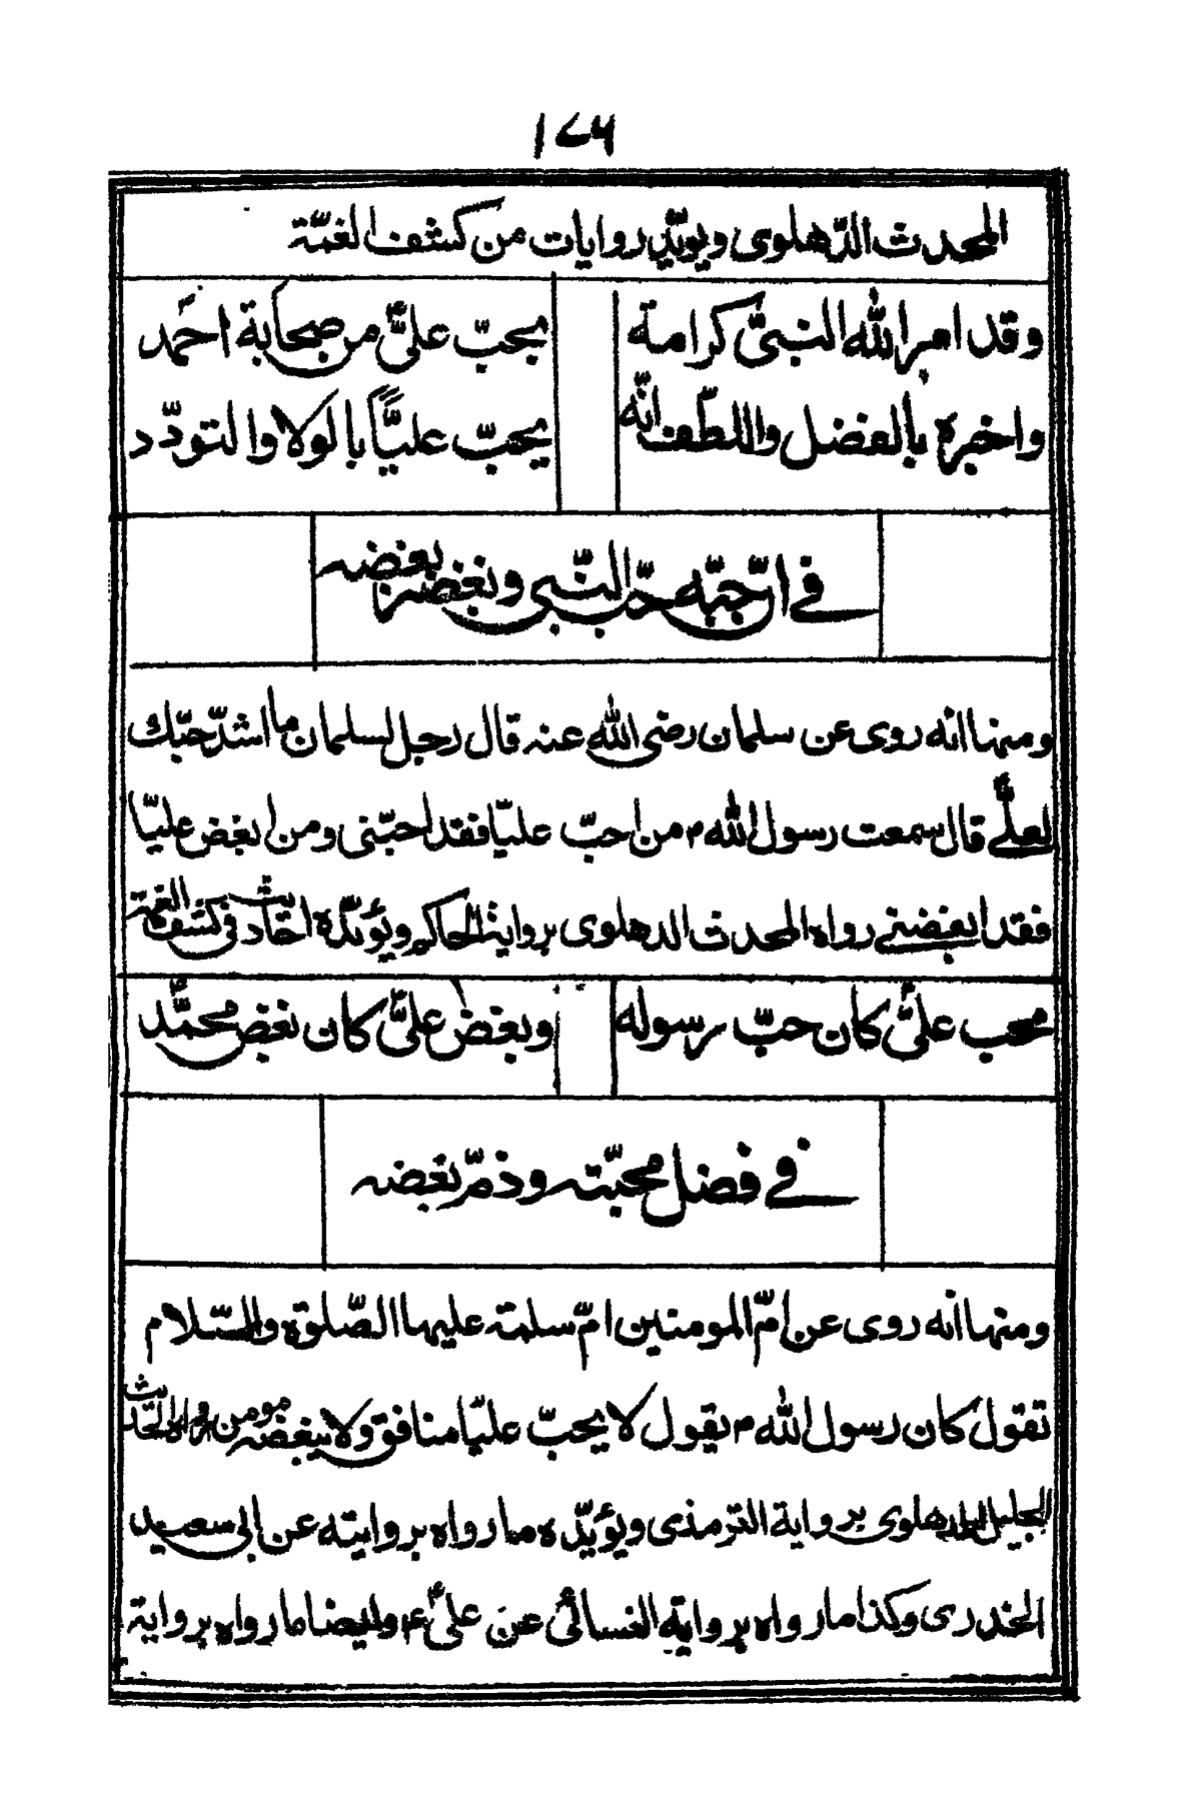 ١٧٦
المحدث الدهلوى ويؤيّد روايات من كشف الغمّة
وقد امر الله النبىّ كرامة بحبّ علىٍّ من صحابة احمد
واخبره بالفضل واللطف انّه يحبّ عليّاً بالولا والتودّد
فے انّ حبّه حبّ النبى وبغضه بغضه
ومنها انه روى عن سلمان رضى الله عنه قال رجل لسلمان ما اشدّ حبّك
لعلىٍّ قال سمعت رسول الله م من احبّ عليّا فقد احبّنى ومن ابغض عليّا
فقد ابغضنے رواه المحدث الدهلوى برواية الحاكم ويؤيّده احاديث فى كشف الغمّة
محب علىٍّ كان حبّ رسوله وبغض علىٍّ كان بغض محمّد
فے فضل محبّته وذمّ بغضه
ومنها انه روى عن امّ المومنين امّ سلمة عليها الصّلوة والسّلام
تقول كان رسول الله م يقول لا يحبّ عليّا منافق ولا يبغضه مومن رواه المحدّث
الجليل الدهلوى برواية الترمذى ويؤيّده ما رواه بروايته عن ابى سعيد
الخدرى وكذا ما رواه برواية النسائى عن علىّ ع وايضا ما رواه برواية